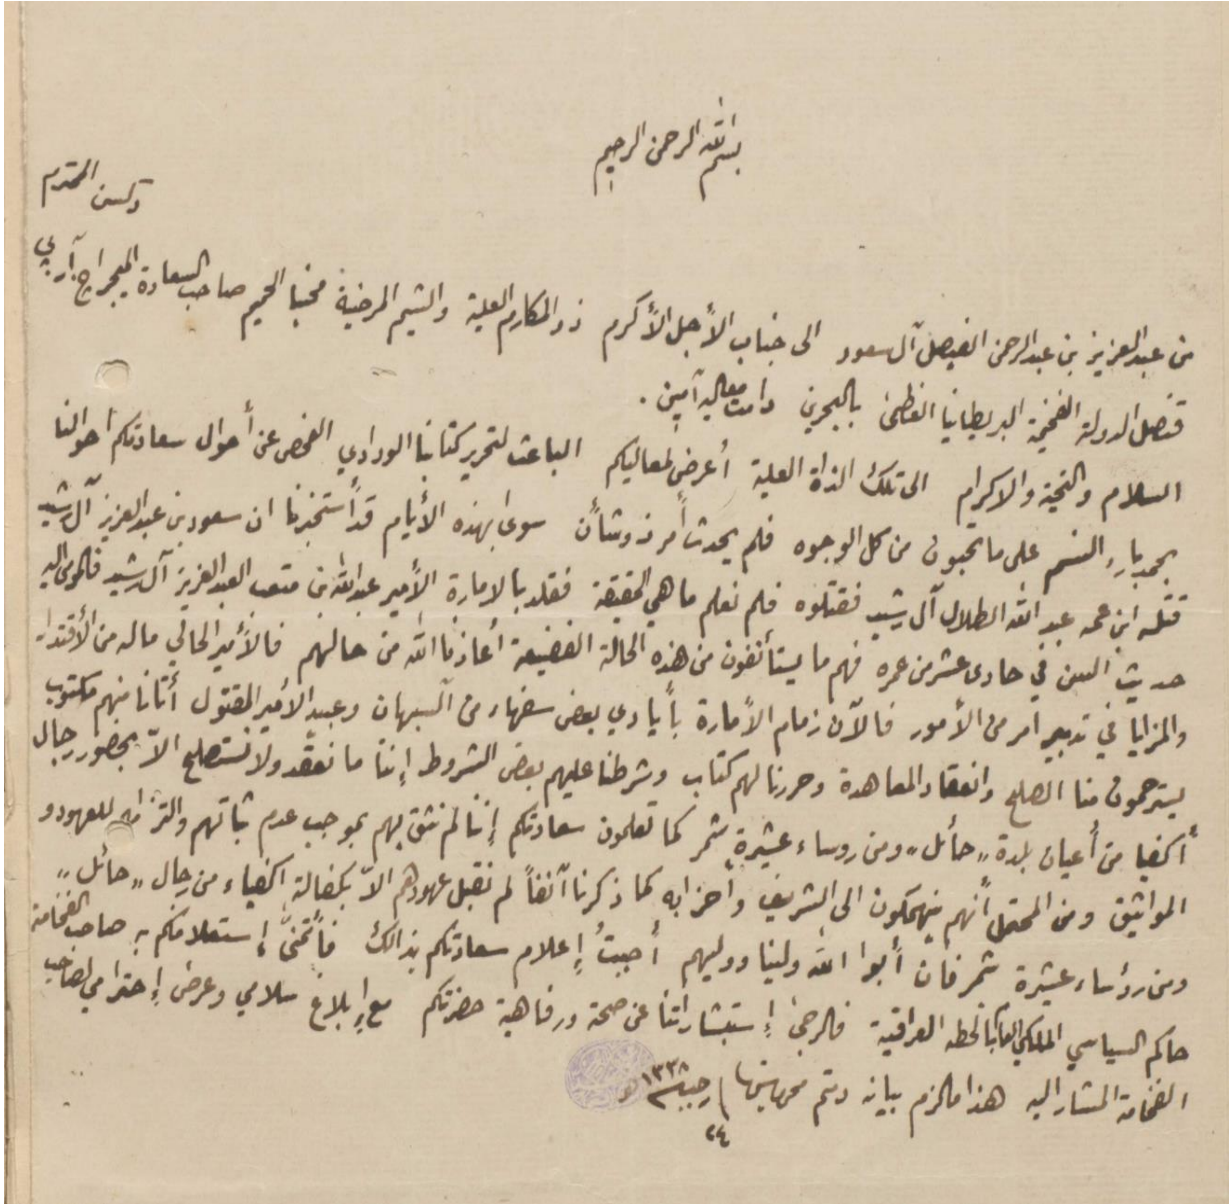 بسم الله الرحمن الرحيم
من عبدالعزيز بن عبدالرحمن الفيصل آل سعود الى جناب الأجل الأكرم ذو المكارم العلية والشيم المرضية محبنا الحميم صاحب السعادة الميجر اج. آر. پي دكسن المحترم
قنصل الدولة الفخيمة البريطانيا العظمى بالبحرين دامت معاليه آمين .
السلام والتحية والاكرام الى تلك الذاة العلية أعرض لمعاليكم الباعث لتحرير كتابنا الودادي الفحص عن أحوال سعادتكم احوالنا
بحمد بارء النسم على ما تحبون من كل الوجوه فلم يحدث أمر ذو شأن سوى بهذه الأيام قد أستخبرنا ان سعود بن عبدالعزيز آل رشيد
قتله ابن عمه عبد الله الطلال آل رشيد فقتلوه فلم نعلم ما هي الحقيقة فقلد بالامارة الأمير عبدالله بن متعب العبد العزيز آل رشيد فالمومى اليه
حديث السن في حادى عشر من عمره فهم ما يستأنفون من هذه الحالة الفضيعة أعاذنا الله من حالهم فالأمير الحالي ماله من الأقتدار
والمزايا في تدبير امر من الأمور فالآن زمام الأمارة بأيادي بعض سفهاء من آلسبهان وعبيد الأمير المقتول أتانا منهم مكتوب
يسترحمون منا الصلح وانعقاد المعاهدة وحررنا لهم كتاب وشرطنا عليهم بعض الشروط إننا ما نعقد ولا نستصلح الاّ بحضور رجال
أكفيا من أعيان بلدة „حأئل„ ومن روساء عشيرة شمر كما تعلمون سعادتكم إننا لم نثق بهم بموجب عدم ثباتهم والتزامهم للعهود و
المواثيق ومن المحتمل أنهم ينهمكون الى الشريف وأحزابه كما ذكرنا آنفاً لم نقبل عهودهم الاّ بكفالة اكفياء من رجال „حأئل„
ومن رؤساء عشيرة شمر فان أبوا الله ولينا ووليهم أحببتُ إعلام سعادتكم بذالك فأتمنىَّ إستعلامكم به صاحب الفخامة
حاكم السياسي الملكي العام بالخطه العراقية فالرجىٰ إستبشاراتنا عن صحة ورفاهية حضرتكم مع إبلاغ سلامي وعرض إحترامي لصاحب
الفخامة المشار اليه هذا مالزم بيانه ودتم محروسين
٢٤ رجب سنة ١٣٣٨ هـ